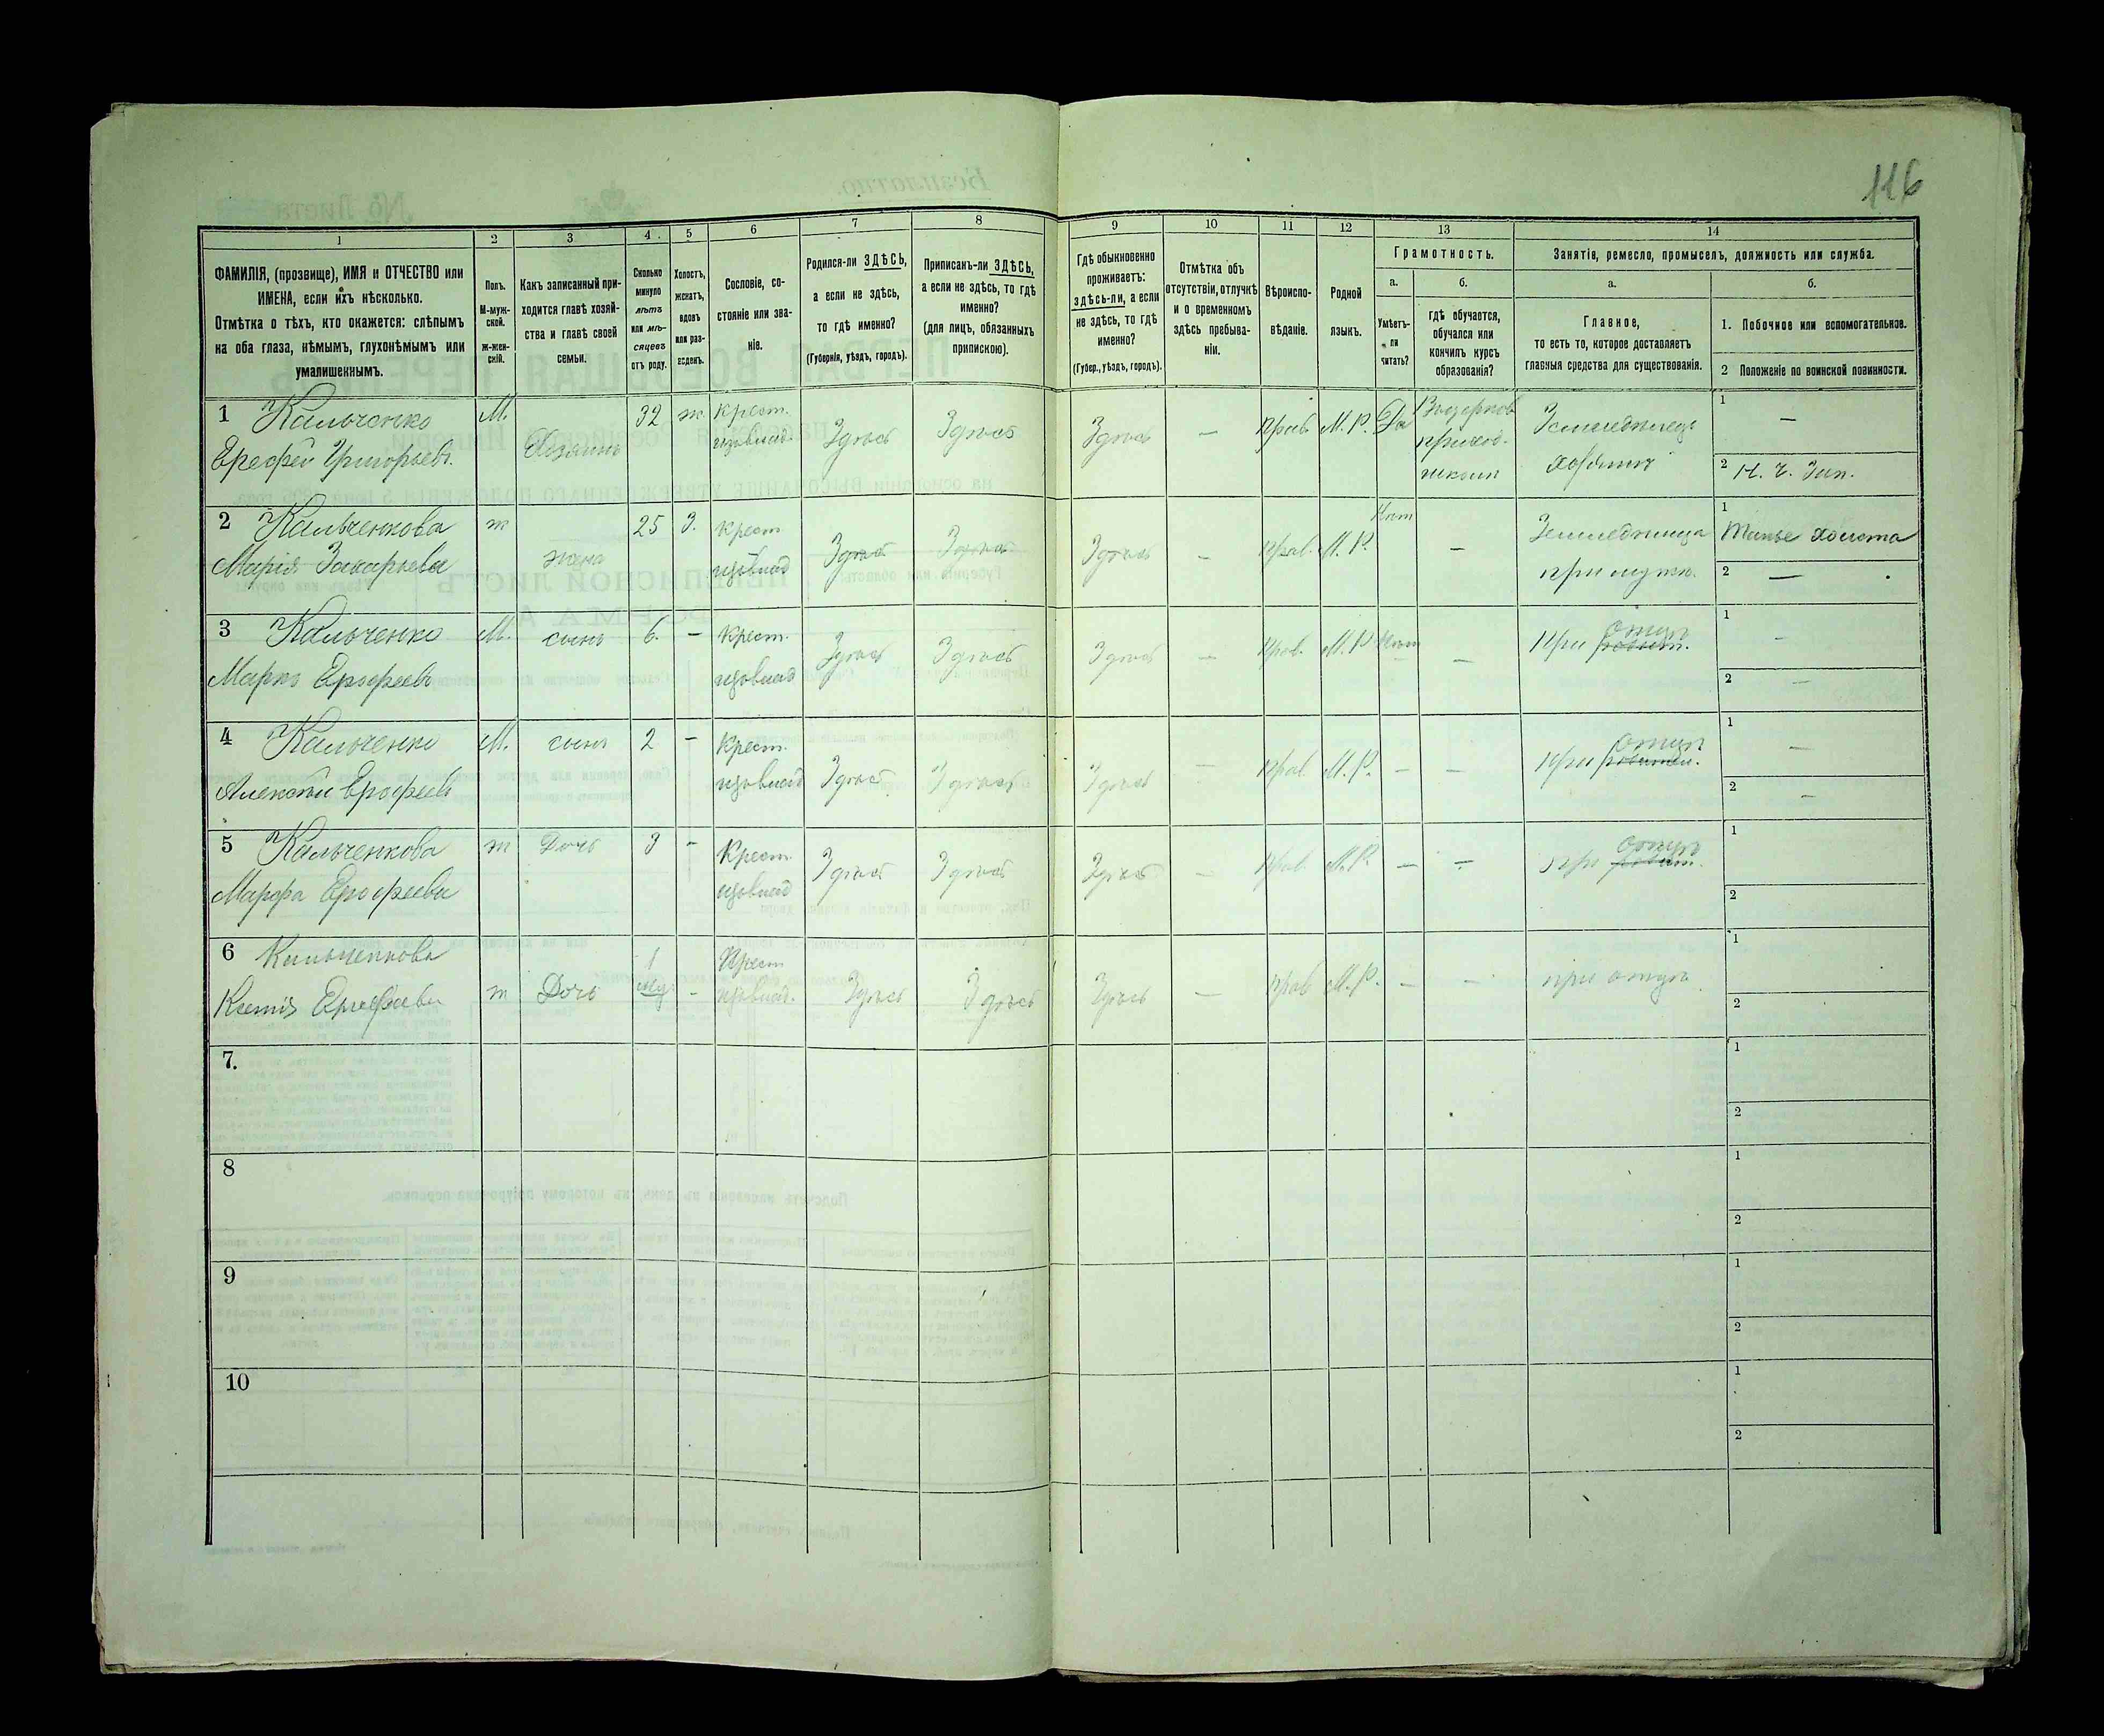 116
1
2
3
4
5
6
7
8
9
10
11
12
13
14
ФАМИЛІЯ, (прозвище), ИМЯ и ОТЧЕСТВО или
ИМЕНА, если ихъ нѣсколько.
Отмѣтка о тѣхъ, кто окажется: слѣпымъ
на оба глаза, нѣмымъ, глухонѣмымъ или
умалишеннымъ.
Полъ.
М-муж-
ской.
Ж-жен-
скій.
Какъ записанный при-
ходится главѣ хозяй-
ства и главѣ своей
семьи.
Сколько
минуло
лѣтъ
или мѣ-
сяцевъ
отъ роду.
Холостъ,
женатъ,
вдовъ
или раз-
веденъ.
Сословіе, со-
стояніе или зва-
ніе.
Родился-ли ЗДѢСЬ,
а если не здѣсь,
то гдѣ именно?
(Губернія, уѣздъ, городъ).
Приписанъ-ли ЗДѢСЬ,
а если не здѣсь, то гдѣ
именно?
(для лицъ, обязанныхъ
припискою).
Гдѣ обыкновенно
проживаетъ:
здѣсь-ли, а если
не здѣсь, то гдѣ
именно?
(Губер., уѣздъ, городъ).
Отмѣтка объ
отсутствіи, отлучкѣ
и о временномъ
здѣсь пребыва-
ніи.
Вѣроиспо-
вѣданіе.
Родной
языкъ.
Грамотность.
а.
Умѣетъ-
ли
читать?
б.
гдѣ обучается,
обучался или
кончилъ курсъ
образованія?
Занятія, ремесло, промыселъ, должность или служба.
а.
Главное,
то есть то, которое доставляетъ
главныя средства для существованія.
б.
1. Побочное или вспомогательное.
2 Положеніе по воинской повинности.
1 Кальченко М. 32 ж. Крест.
Ерофей Григорьевъ. Хозяинъ Здѣсь Здѣсь Здѣсь — Прав. М. Р. Да
приход. школи
Земледѣлецъ хозяинъ
1 —
2 Н. Ч. Зап.
2 Кальченкова ж 25 З. Крест
Марія Захарьева жена Здѣсь Здѣсь Здѣсь — Прав. М. Р. Нѣт —
Земледѣлица
при мужѣ.
1 Тканье холста
2 —
3 Кальченко М. сынъ 6. — Крест.
Марко Ерофеевъ Здѣсь Здѣсь Здѣсь — Прав. М. Р. Нѣт —
При отцѣ
1 —
2 —
4 Кальченко М. сынъ 2 — Крест.
Алексѣй Ерофеевъ Здѣсь Здѣсь Здѣсь — Прав. М. Р. — —
При отцѣ
1 —
2 —
5 Кальченкова ж Дочь 3 — Крест.
Марфа Ерофеева Здѣсь Здѣсь Здѣсь — Прав. М. Р. — —
при отцѣ
1
2
6 Кальченкова 1 Крест
Ксенія Ерофеева ж Дочь — Здѣсь Здѣсь Здѣсь — прав М. Р. — —
при отцѣ
1
2
7.
1
2
8
1
2
9
1
2
10
1
2